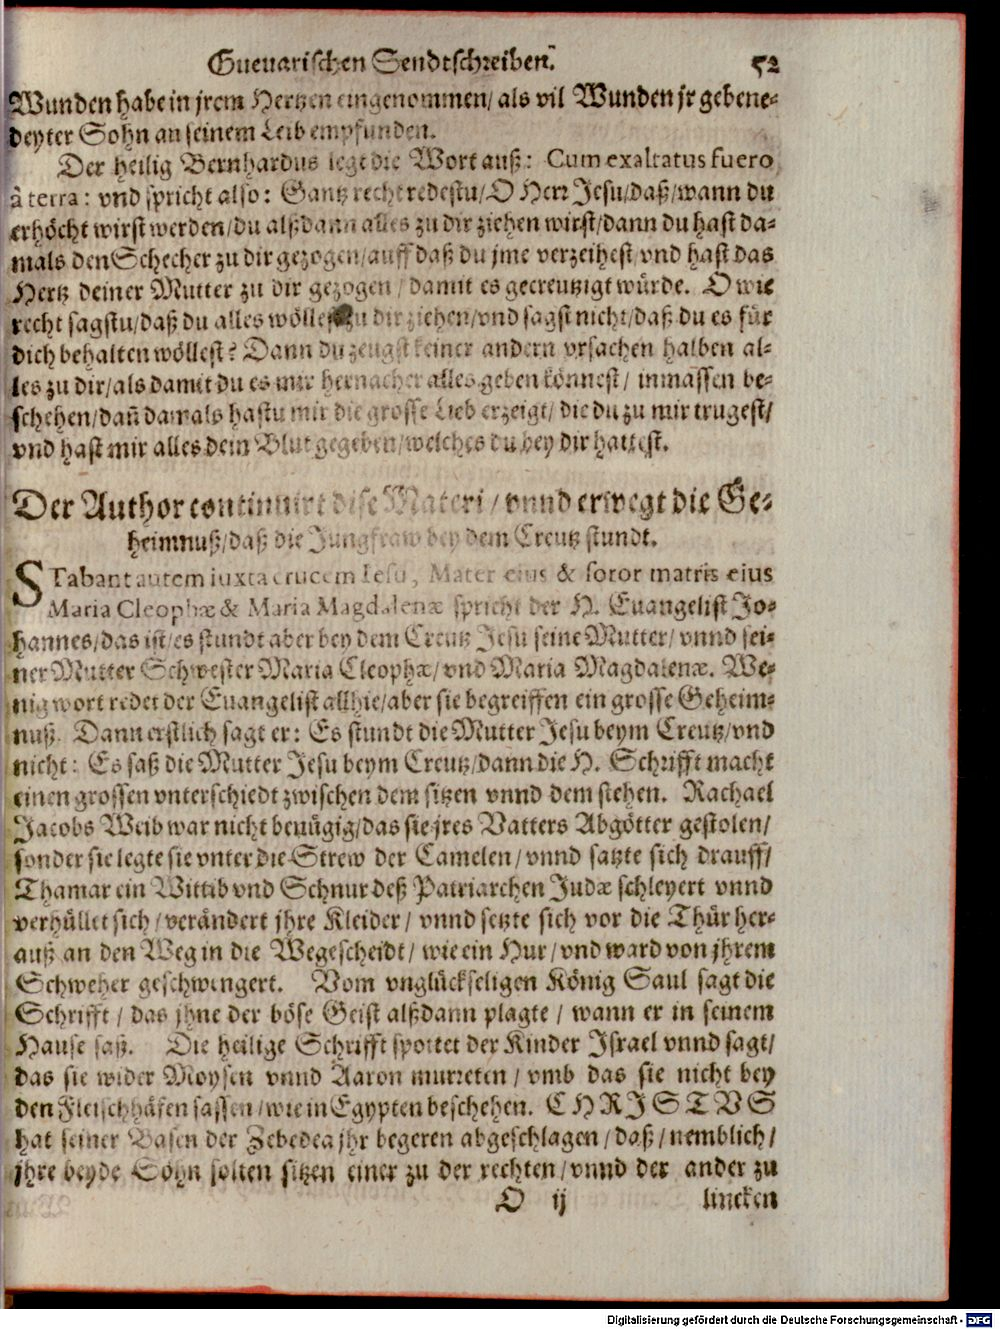 Guevarischen Sendtschreiben. 52
Wunden habe in jrem Hertzen eingenommen/ als vil Wunden jr gebene-
deyter Sohn an seinem Leib empfunden.
Der heilig Bernhardus legt die Wort auß: Cum exaltatus fuero
â terra: vnd spricht also: Gantz recht redestu/ O Herr Jesu/daß/wann du
erhöcht wirst werden/du alßdann alles zu dir ziehen wirst/dann du hast da-
mals den Schecher zu dir gezogen/auff daß du jme verzeihest/vnd hast das
Hertz deiner Mutter zu dir gezogen/ damit es gecreutzigt würde. O wie
recht sagstu/daß du alles wöllest zu dir ziehen/vnd sagst nicht/daß du es für
dich behalten wöllest? Dann du zeugst keiner andern vrsachen halben al-
les zu dir/als damit du es mir hernacher alles geben könnest/ inmassen be-
schehen/dañ damals hastu mir die grosse Lieb erzeigt/ die du zu mir trugest/
vnd hast mir alles dein Blut gegeben/welches du bey dir hattest.
Der Author continuirt dise Materi/ vnnd erwegt die Ge-
heimnuß/daß die Jungfraw bey dem Creutz stundt.
STabant autem iuxta crucem Iesu, Mater eius & soror matris eius
Maria Cleophæ & Maria Magdalenæ spricht der H. Euangelist Jo-
hannes/das ist/es stundt aber bey dem Creutz Jesu seine Mutter/ vnnd sei-
ner Mutter Schwester Maria Cleophæ/vnd Maria Magdalenæ. We-
nig wort redet der Euangelist allhie/aber sie begreiffen ein grosse Geheim-
nuß. Dann erstlich sagt er: Es stundt die Mutter Jesu beym Creutz/vnd
nicht: Es saß die Mutter Jesu beym Creutz/dann die H. Schrifft macht
einen grossen vnterschiedt zwischen dem sitzen vnnd dem stehen. Rachael
Jacobs Weib war nicht benügig/das sie jres Vatters Abgötter gestolen/
sonder sie legte sie vnter die Strew der Camelen/ vnnd satzte sich drauff/
Thamar ein Wittib vnd Schnur deß Patriarchen Judæ schleyert vnnd
verhüllet sich/verändert jhre Kleider/ vnnd setzte sich vor die Thür her-
auß an den Weg in die Wegescheidt/ wie ein Hur/vnd ward von jhrem
Schweher geschwengert. Vom vnglückseligen König Saul sagt die
Schrifft/ das jhne der böse Geist alßdann plagte/ wann er in seinem
Hause saß. Die heilige Schrifft spottet der Kinder Israel vnnd sagt/
das sie wider Moysen vnnd Aaron murreten/ vmb das sie nicht bey
den Fleischhäfen sassen/wie in Egypten beschehen. CHRISTVS
hat seiner Basen der Zebedea jhr begeren abgeschlagen/daß/nemblich/
jhre beyde Söhn solten sitzen einer zu der rechten/vnnd der ander zu
O ij lincken
Digitalisierung gefördert durch die Deutsche Forschungsgemeinschaft - DFG